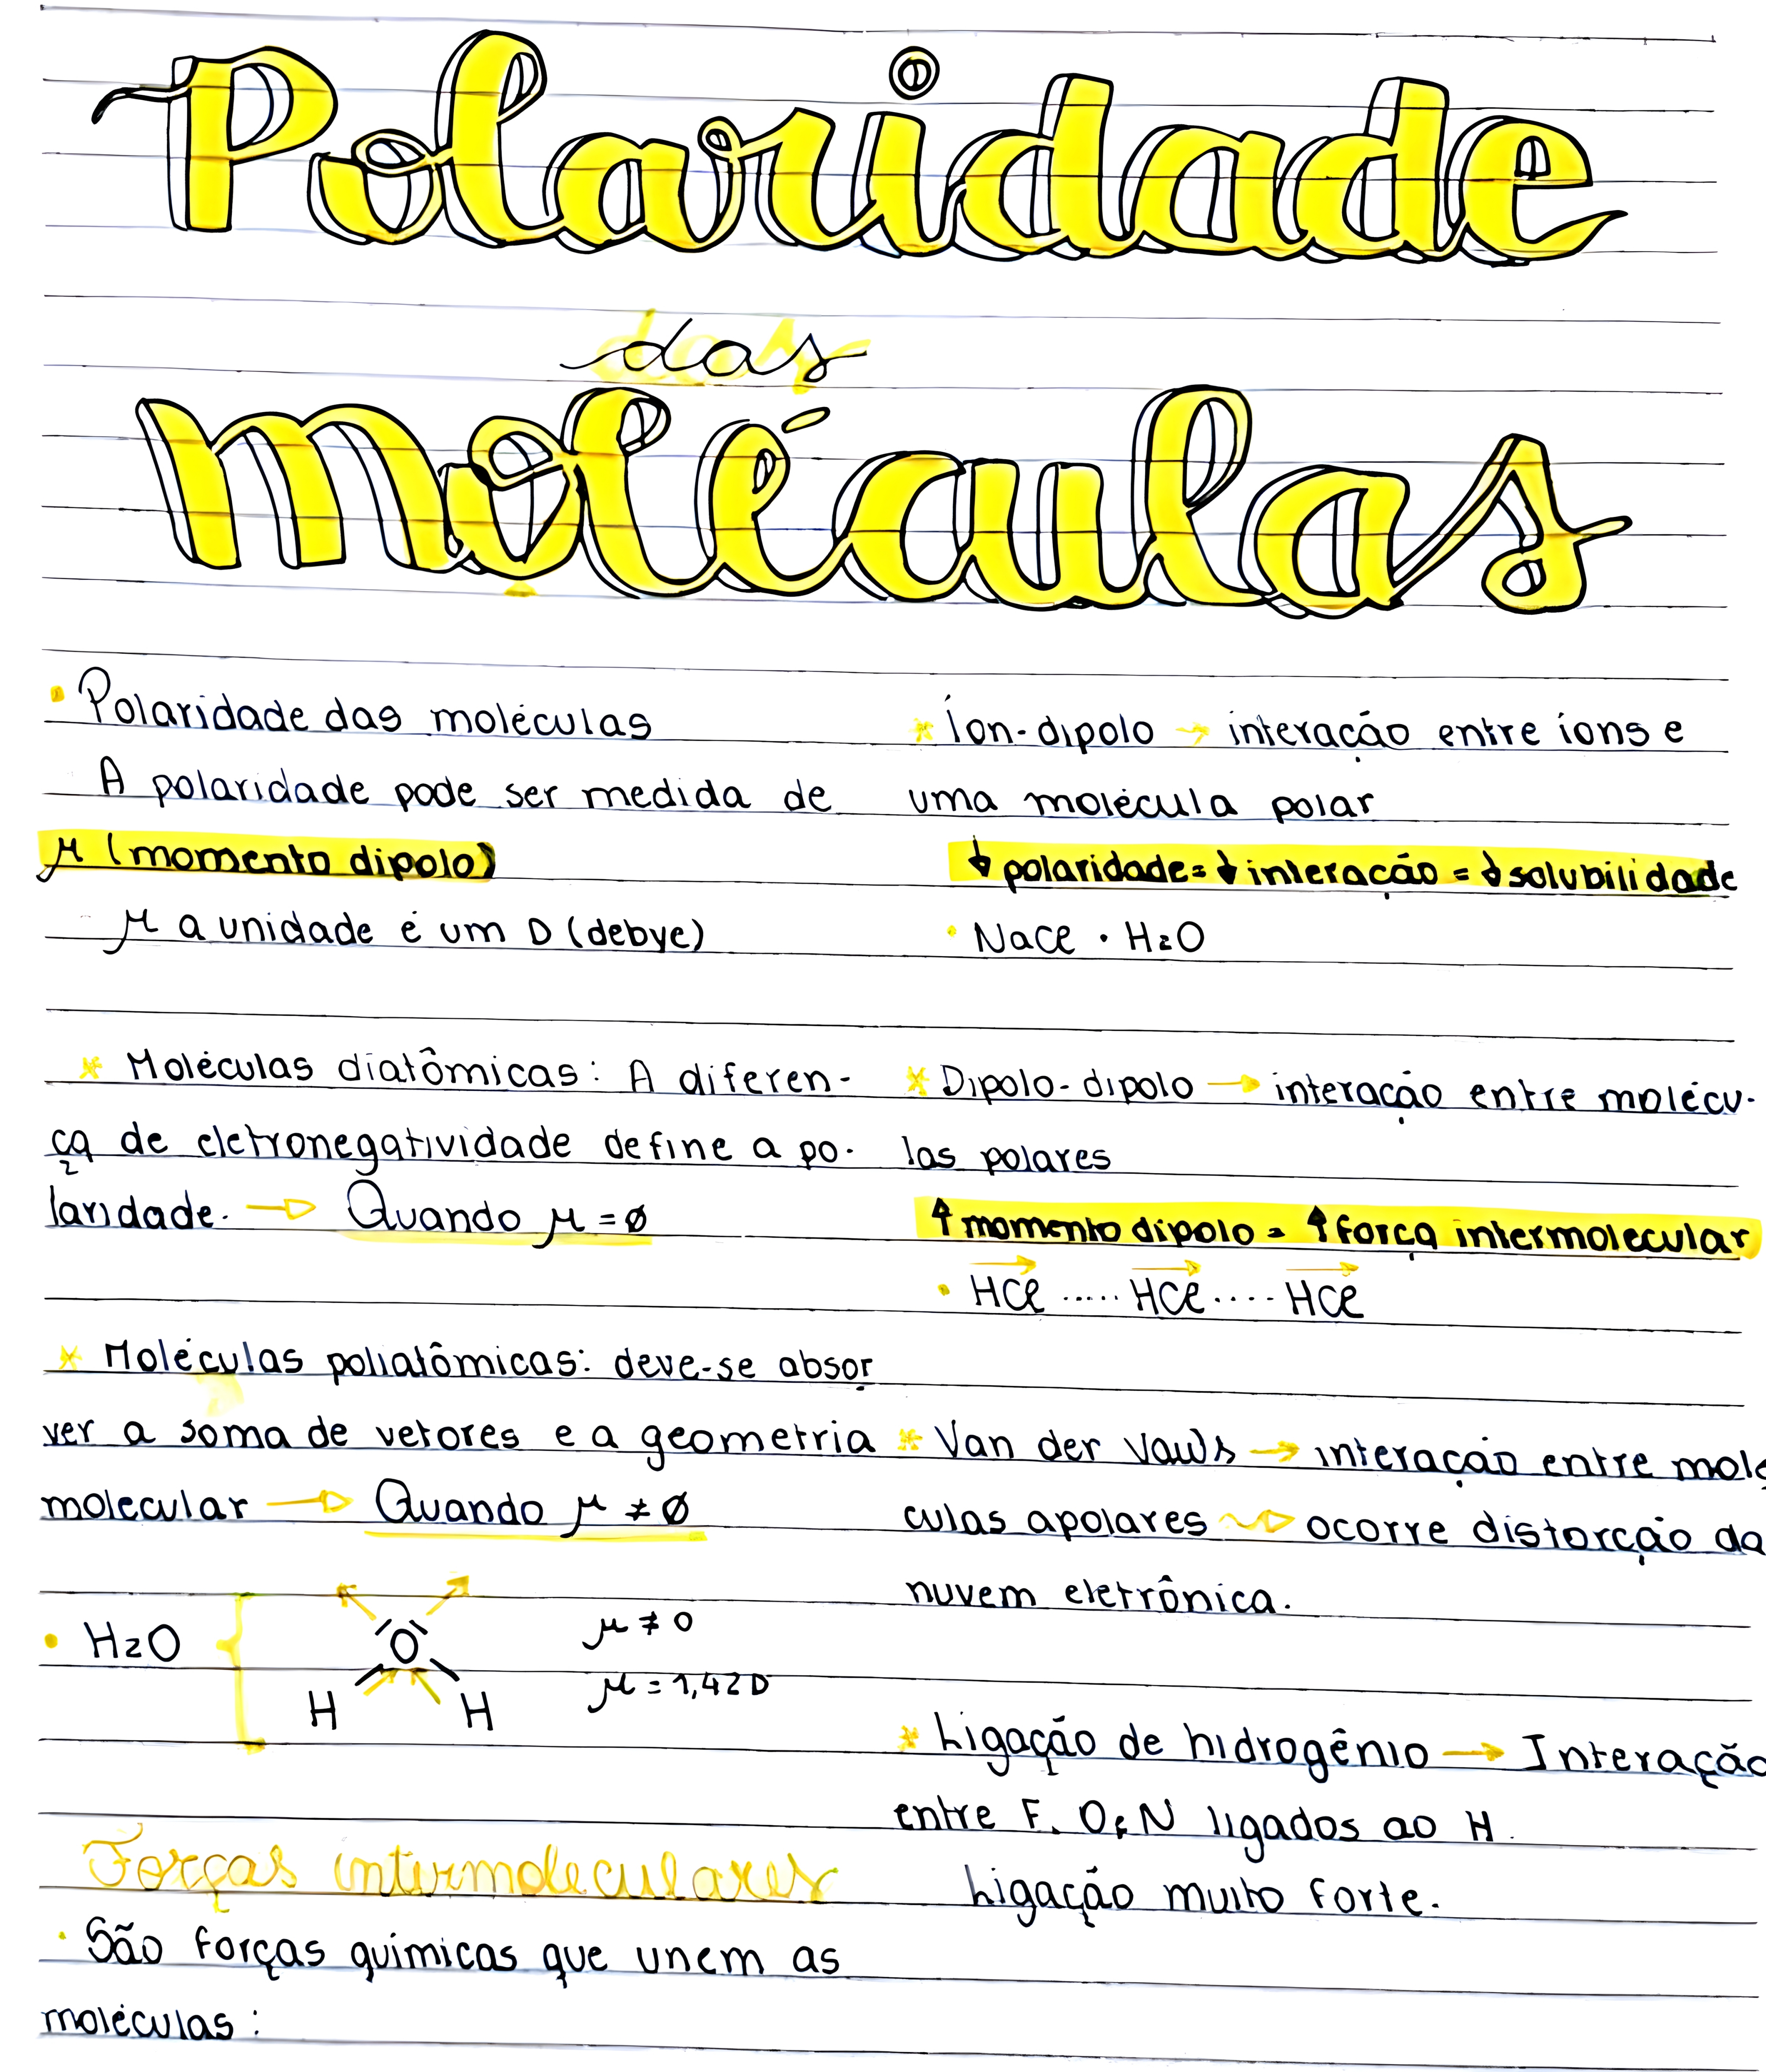 Polaridade
das
moléculas
• Polaridade das moléculas
A polaridade pode ser medida de
μ (momento dipolo)
μ a unidade é um D (debye)
* Moléculas diatômicas: A diferen-
ça de eletronegatividade define a po-
laridade. → Quando μ = ø
* Moléculas poliatômicas: deve-se absor
ver a soma de vetores e a geometria
molecular → Quando μ ≠ ø
• H2O
O
H H
μ ≠ 0
μ = 1,42 D
Forças intermoleculares
• São forças químicas que unem as
moléculas:
* Íon-dipolo → interação entre íons e
uma molécula polar
↓ polaridade = ↓ interação = ↓ solubilidade
• NaCl · H2O
* Dipolo-dipolo → interação entre molécu-
las polares
↑ momento dipolo = ↑ força intermolecular
• HCl ..... HCl .... HCl
* Van der Vawls → interação entre molé
culas apolares → ocorre distorção da
nuvem eletrônica.
* Ligação de hidrogênio → Interação
entre F, O e N ligados ao H.
Ligação muito forte.